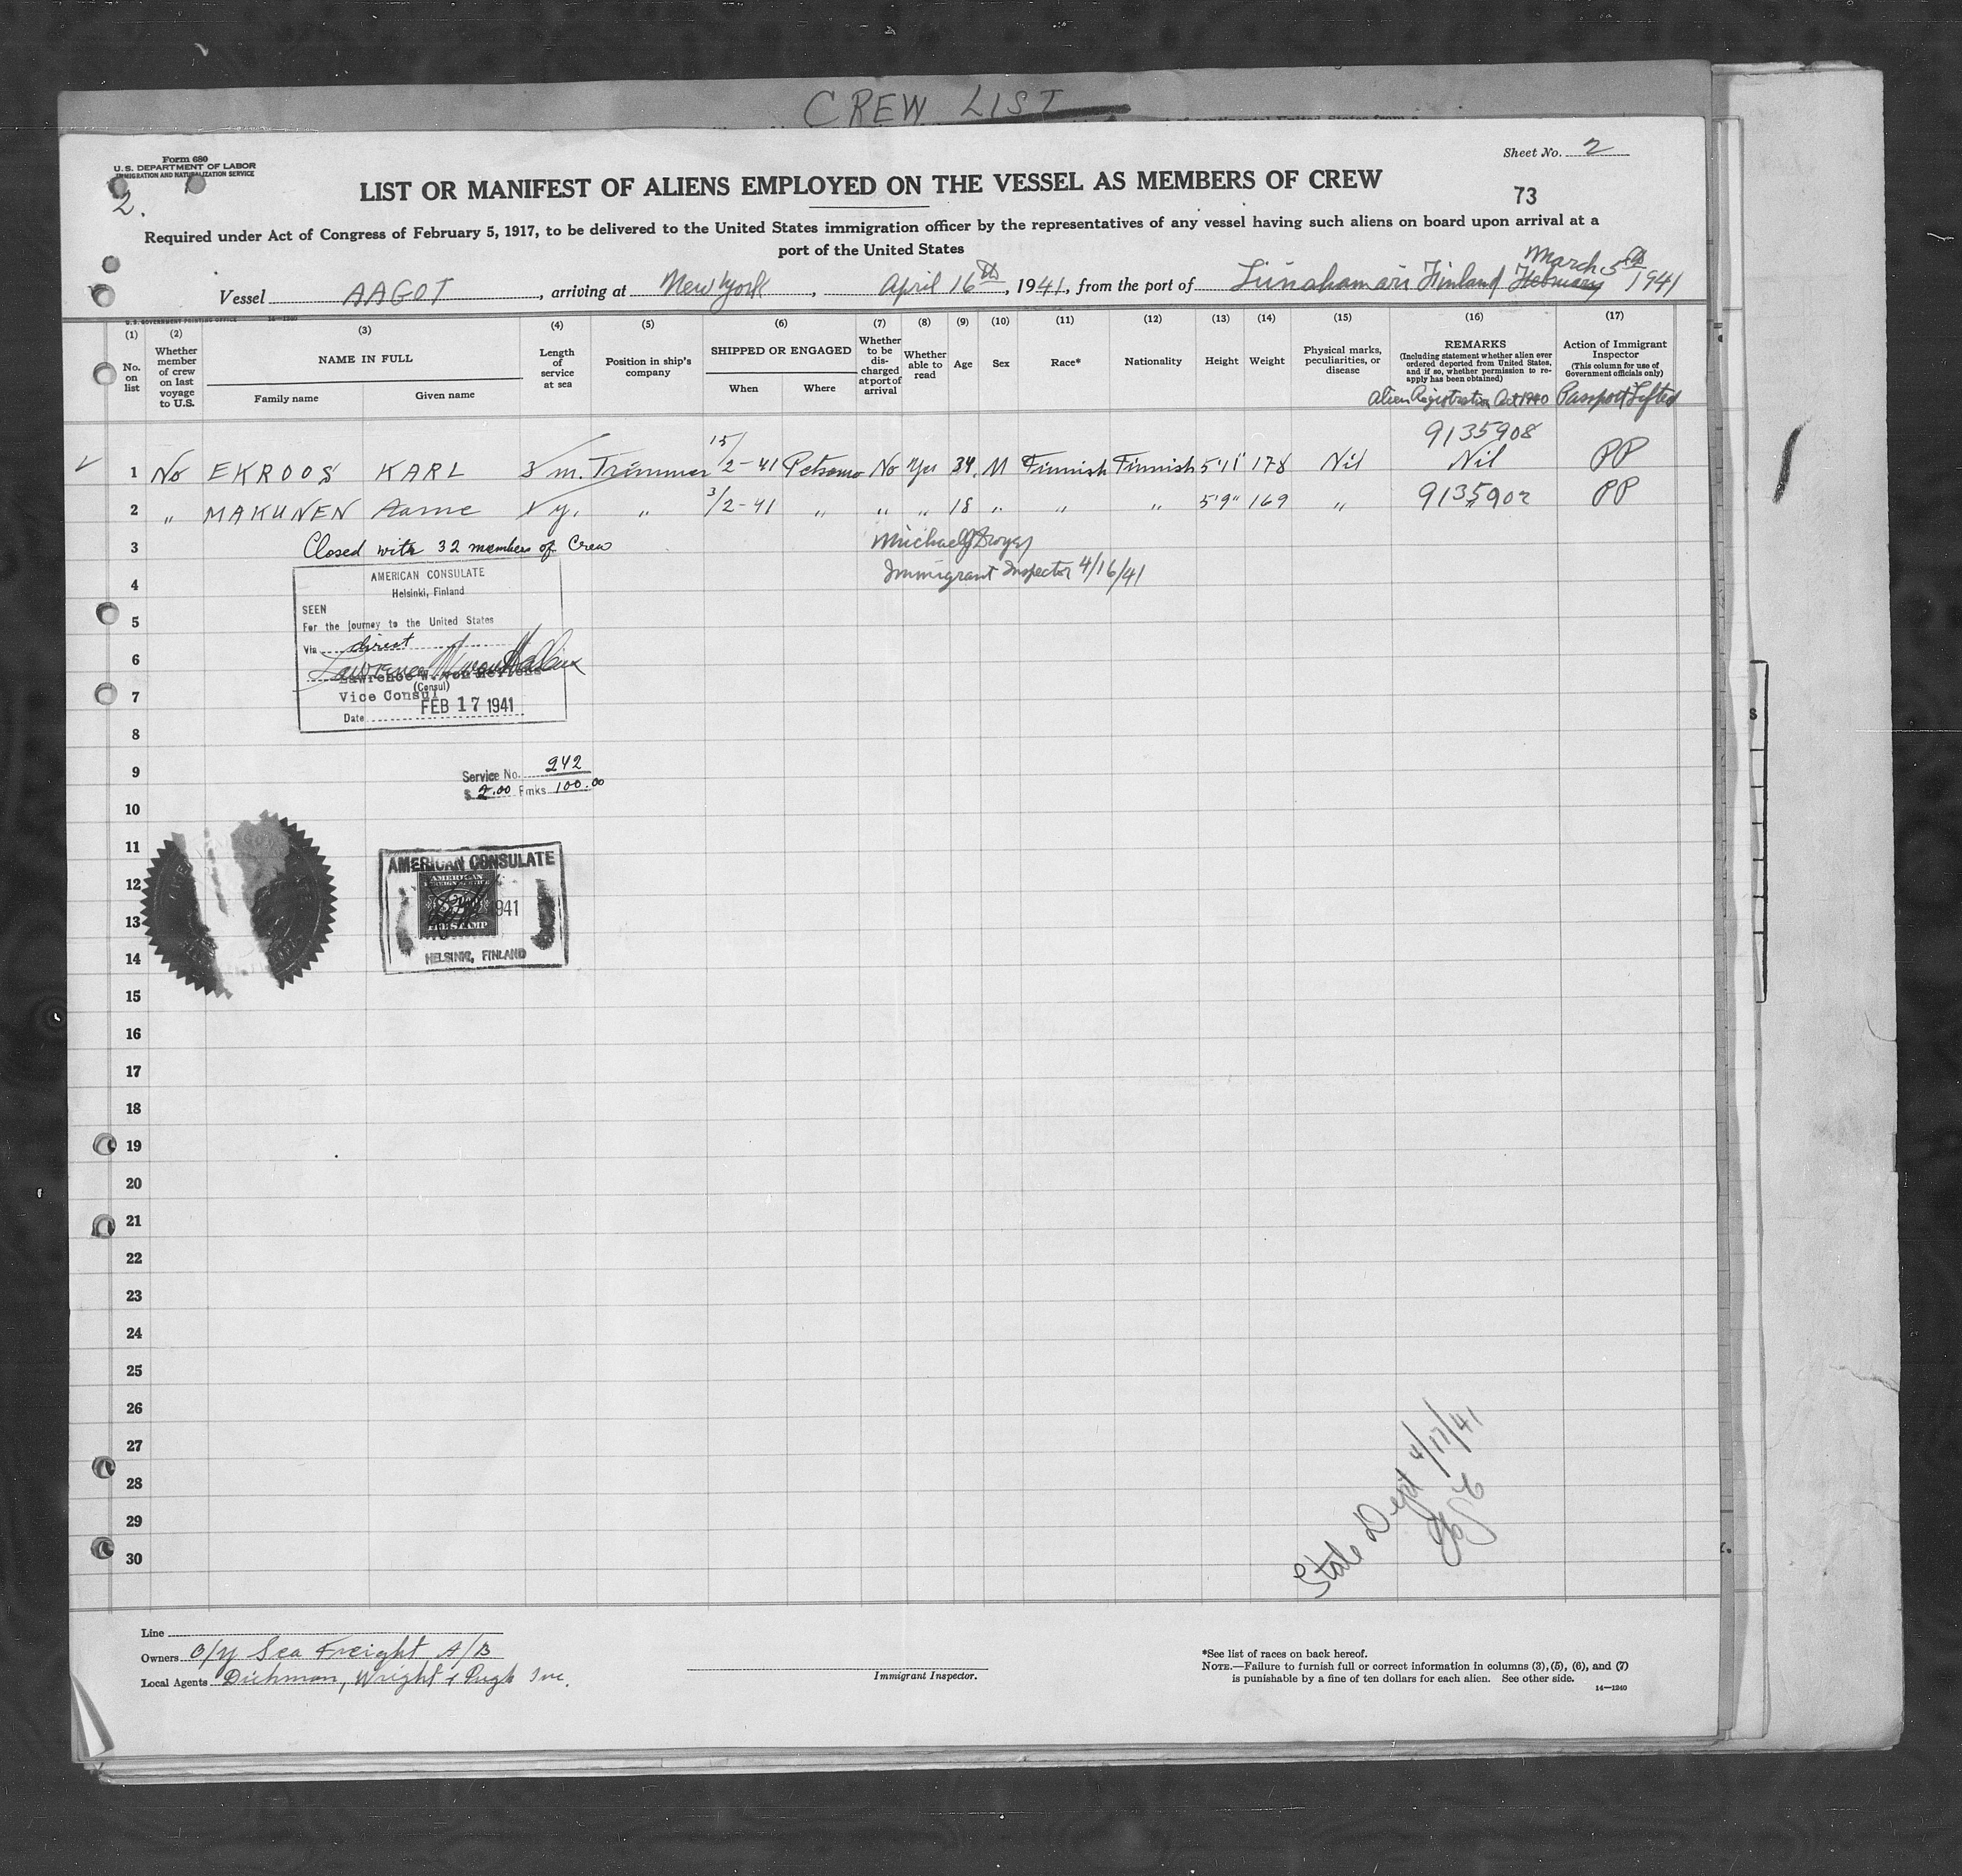 CREW LIST
Form 680
U.S. DEPARTMENT OF LABOR
IMMIGRATION AND NATURALIZATION SERVICE
Sheet No. 2
2.
LIST OR MANIFEST OF ALIENS EMPLOYED ON THE VESSEL AS MEMBERS OF CREW
73
Required under Act of Congress of February 5, 1917, to be delivered to the United States immigration officer by the representatives of any vessel having such aliens on board upon arrival at a
port of the United States
March 5th
Vessel AAGOT, arriving at New York, April 16th, 1941, from the port of Liinahamari Finland February 1941
U.S. GOVERNMENT PRINTING OFFICE 14—1240
(1) (2) (3) (4) (5) (6) (7) (8) (9) (10) (11) (12) (13) (14) (15) (16) (17)
No. on list
Whether member of crew on last voyage to U.S.
NAME IN FULL
Family name
Given name
Length of service at sea
Position in ship's company
SHIPPED OR ENGAGED
When
Where
Whether to be discharged at port of arrival
Whether able to read
Age
Sex
Race*
Nationality
Height
Weight
Physical marks, peculiarities, or disease
REMARKS
(Including statement whether alien ever ordered deported from United States, and if so, whether permission to reapply has been obtained)
Alien Registration Act 1940
Action of Immigrant Inspector
(This column for use of Government officials only)
Passport Lifted
9135908
1 No EKROOS KARL 3 m. Trimmer 15/2-41 Petsamo No Yes 34 M Finnish Finnish 5'11" 178 Nil Nil PP
2 " MAKUNEN Aarne y. " 3/2-41 " " " 18 " " " 5'9" 169 " 9135902 PP
3 Closed with 32 members of Crew
4 Immigrant Inspector 4/16/41
AMERICAN CONSULATE
Helsinki, Finland
SEEN
For the journey to the United States
Via direct
Lawrence W. von Hellens
(Consul)
Vice Consul
Date FEB 17 1941
5
6
7
8
9
Service No. 242
$ 2.00 Fmks 100.00
10
11
12
13
14
AMERICAN CONSULATE
AMERICAN
FOREIGN SERVICE
FEE STAMP
1941
HELSINKI, FINLAND
15
16
17
18
19
20
21
22
23
24
25
26
27
28
29
30
State Dept 4/17/41
Line
Owners O/Y Sea Freight A/B
Local Agents Dichman, Wright & Pugh Inc.
Immigrant Inspector.
*See list of races on back hereof.
NOTE.—Failure to furnish full or correct information in columns (3), (5), (6), and (7)
is punishable by a fine of ten dollars for each alien. See other side.
14—1240